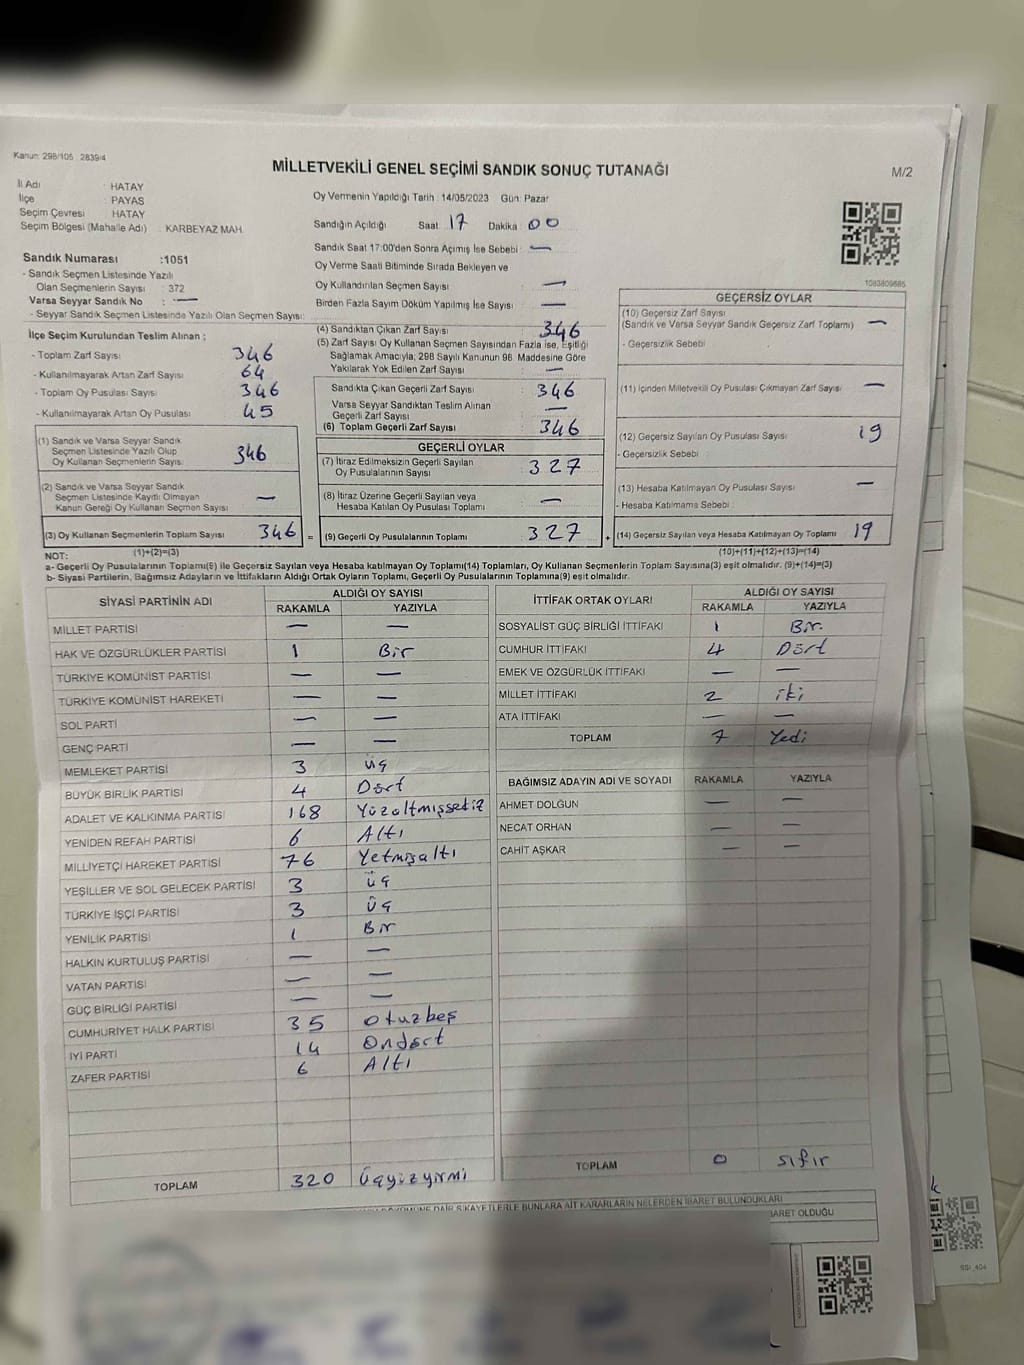 Kanun: 298/105 2839/4
MİLLETVEKİLİ GENEL SEÇİMİ SANDIK SONUÇ TUTANAĞI
M/2
İl Adı : HATAY
İlçe : PAYAS
Seçim Çevresi : HATAY
Seçim Bölgesi (Mahalle Adı) : KARBEYAZ MAH.
Oy Vermenin Yapıldığı Tarih : 14/05/2023 Gün: Pazar
Sandığın Açıldığı Saat : 17 Dakika : 00
Sandık Saat 17:00'den Sonra Açılmış İse Sebebi : —
Oy Verme Saati Bitiminde Sırada Bekleyen ve
Oy Kullandırılan Seçmen Sayısı : —
Birden Fazla Sayım Döküm Yapılmış İse Sayısı : —
1083809885
Sandık Numarası :1051
- Sandık Seçmen Listesinde Yazılı
Olan Seçmenlerin Sayısı : 372
Varsa Seyyar Sandık No : —
- Seyyar Sandık Seçmen Listesinde Yazılı Olan Seçmen Sayısı:
İlçe Seçim Kurulundan Teslim Alınan ;
- Toplam Zarf Sayısı : 346
- Kullanılmayarak Artan Zarf Sayısı : 64
- Toplam Oy Pusulası Sayısı : 346
- Kullanılmayarak Artan Oy Pusulası : 45
(1) Sandık ve Varsa Seyyar Sandık
Seçmen Listesinde Yazılı Olup
Oy Kullanan Seçmenlerin Sayısı: 346
(2) Sandık ve Varsa Seyyar Sandık
Seçmen Listesinde Kayıtlı Olmayan
Kanun Gereği Oy Kullanan Seçmen Sayısı : —
(3) Oy Kullanan Seçmenlerin Toplam Sayısı : 346
(1)+(2)=(3)
(4) Sandıktan Çıkan Zarf Sayısı : 346
(5) Zarf Sayısı Oy Kullanan Seçmen Sayısından Fazla İse, Eşitliği
Sağlamak Amacıyla; 298 Sayılı Kanunun 98. Maddesine Göre
Yakılarak Yok Edilen Zarf Sayısı : —
Sandıkta Çıkan Geçerli Zarf Sayısı : 346
Varsa Seyyar Sandıktan Teslim Alınan
Geçerli Zarf Sayısı : —
(6) Toplam Geçerli Zarf Sayısı : 346
GEÇERLİ OYLAR
(7) İtiraz Edilmeksizin Geçerli Sayılan
Oy Pusulalarının Sayısı : 327
(8) İtiraz Üzerine Geçerli Sayılan veya
Hesaba Katılan Oy Pusulası Toplamı : —
= (9) Geçerli Oy Pusulalarının Toplamı : 327 +
GEÇERSİZ OYLAR
(10) Geçersiz Zarf Sayısı
(Sandık ve Varsa Seyyar Sandık Geçersiz Zarf Toplamı) : —
- Geçersizlik Sebebi :
(11) İçinden Milletvekili Oy Pusulası Çıkmayan Zarf Sayısı : —
(12) Geçersiz Sayılan Oy Pusulası Sayısı : 19
- Geçersizlik Sebebi :
(13) Hesaba Katılmayan Oy Pusulası Sayısı : —
- Hesaba Katılmama Sebebi :
(14) Geçersiz Sayılan veya Hesaba Katılmayan Oy Toplamı : 19
(10)+(11)+(12)+(13)=(14)
NOT:
a- Geçerli Oy Pusulalarının Toplamı(9) ile Geçersiz Sayılan veya Hesaba katılmayan Oy Toplamı(14) Toplamları, Oy Kullanan Seçmenlerin Toplam Sayısına(3) eşit olmalıdır. (9)+(14)=(3)
b- Siyasi Partilerin, Bağımsız Adayların ve İttifakların Aldığı Ortak Oyların Toplamı, Geçerli Oy Pusulalarının Toplamına(9) eşit olmalıdır.
SİYASİ PARTİNİN ADI ALDIĞI OY SAYISI
RAKAMLA YAZIYLA
MİLLET PARTİSİ — —
HAK VE ÖZGÜRLÜKLER PARTİSİ 1 Bir
TÜRKİYE KOMÜNİST PARTİSİ — —
TÜRKİYE KOMÜNİST HAREKETİ — —
SOL PARTİ — —
GENÇ PARTİ — —
MEMLEKET PARTİSİ 3 üç
BÜYÜK BİRLİK PARTİSİ 4 Dört
ADALET VE KALKINMA PARTİSİ 168 Yüzaltmışsekiz
YENİDEN REFAH PARTİSİ 6 Altı
MİLLİYETÇİ HAREKET PARTİSİ 76 Yetmişaltı
YEŞİLLER VE SOL GELECEK PARTİSİ 3 üç
TÜRKİYE İŞÇİ PARTİSİ 3 üç
YENİLİK PARTİSİ 1 Bir
HALKIN KURTULUŞ PARTİSİ — —
VATAN PARTİSİ — —
GÜÇ BİRLİĞİ PARTİSİ — —
CUMHURİYET HALK PARTİSİ 35 otuzbeş
İYİ PARTİ 14 Ondört
ZAFER PARTİSİ 6 Altı
TOPLAM 320 Üçyüzyirmi
İTTİFAK ORTAK OYLARI ALDIĞI OY SAYISI
RAKAMLA YAZIYLA
SOSYALİST GÜÇ BİRLİĞİ İTTİFAKI 1 Bir
CUMHUR İTTİFAKI 4 Dört
EMEK VE ÖZGÜRLÜK İTTİFAKI — —
MİLLET İTTİFAKI 2 iki
ATA İTTİFAKI — —
TOPLAM 7 Yedi
BAĞIMSIZ ADAYIN ADI VE SOYADI RAKAMLA YAZIYLA
AHMET DOLĞUN — —
NECAT ORHAN — —
CAHİT AŞKAR — —
TOPLAM 0 sıfır
DÖKÜMÜNE DAİR ŞİKAYETLERLE BUNLARA AİT KARARLARIN NELERDEN İBARET BULUNDUKLARI
İBARET OLDUĞU
SSİ_404